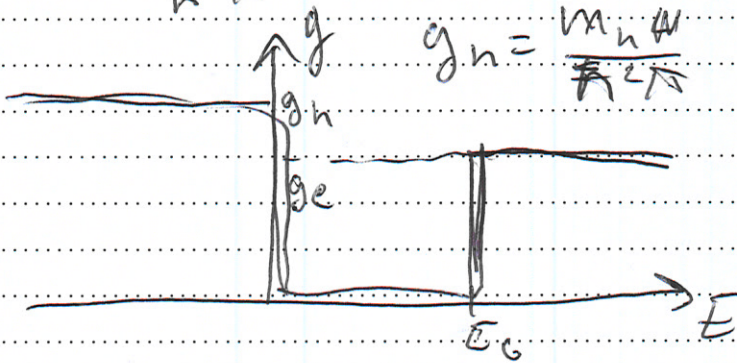 g
g_n = m_n
ħ²π
g_h
g_e
E_G
E